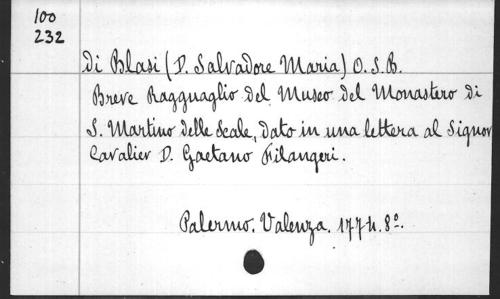 100
232
di Blasi (D. Salvadore Maria) O.S.B.
Breve Ragguaglio del Museo del Monastero di
S. Martino delle Scale, dato in una lettera al Signor
Cavalier D. Gaetano Filangeri.
Palermo. Valenza. 1774. 8º.